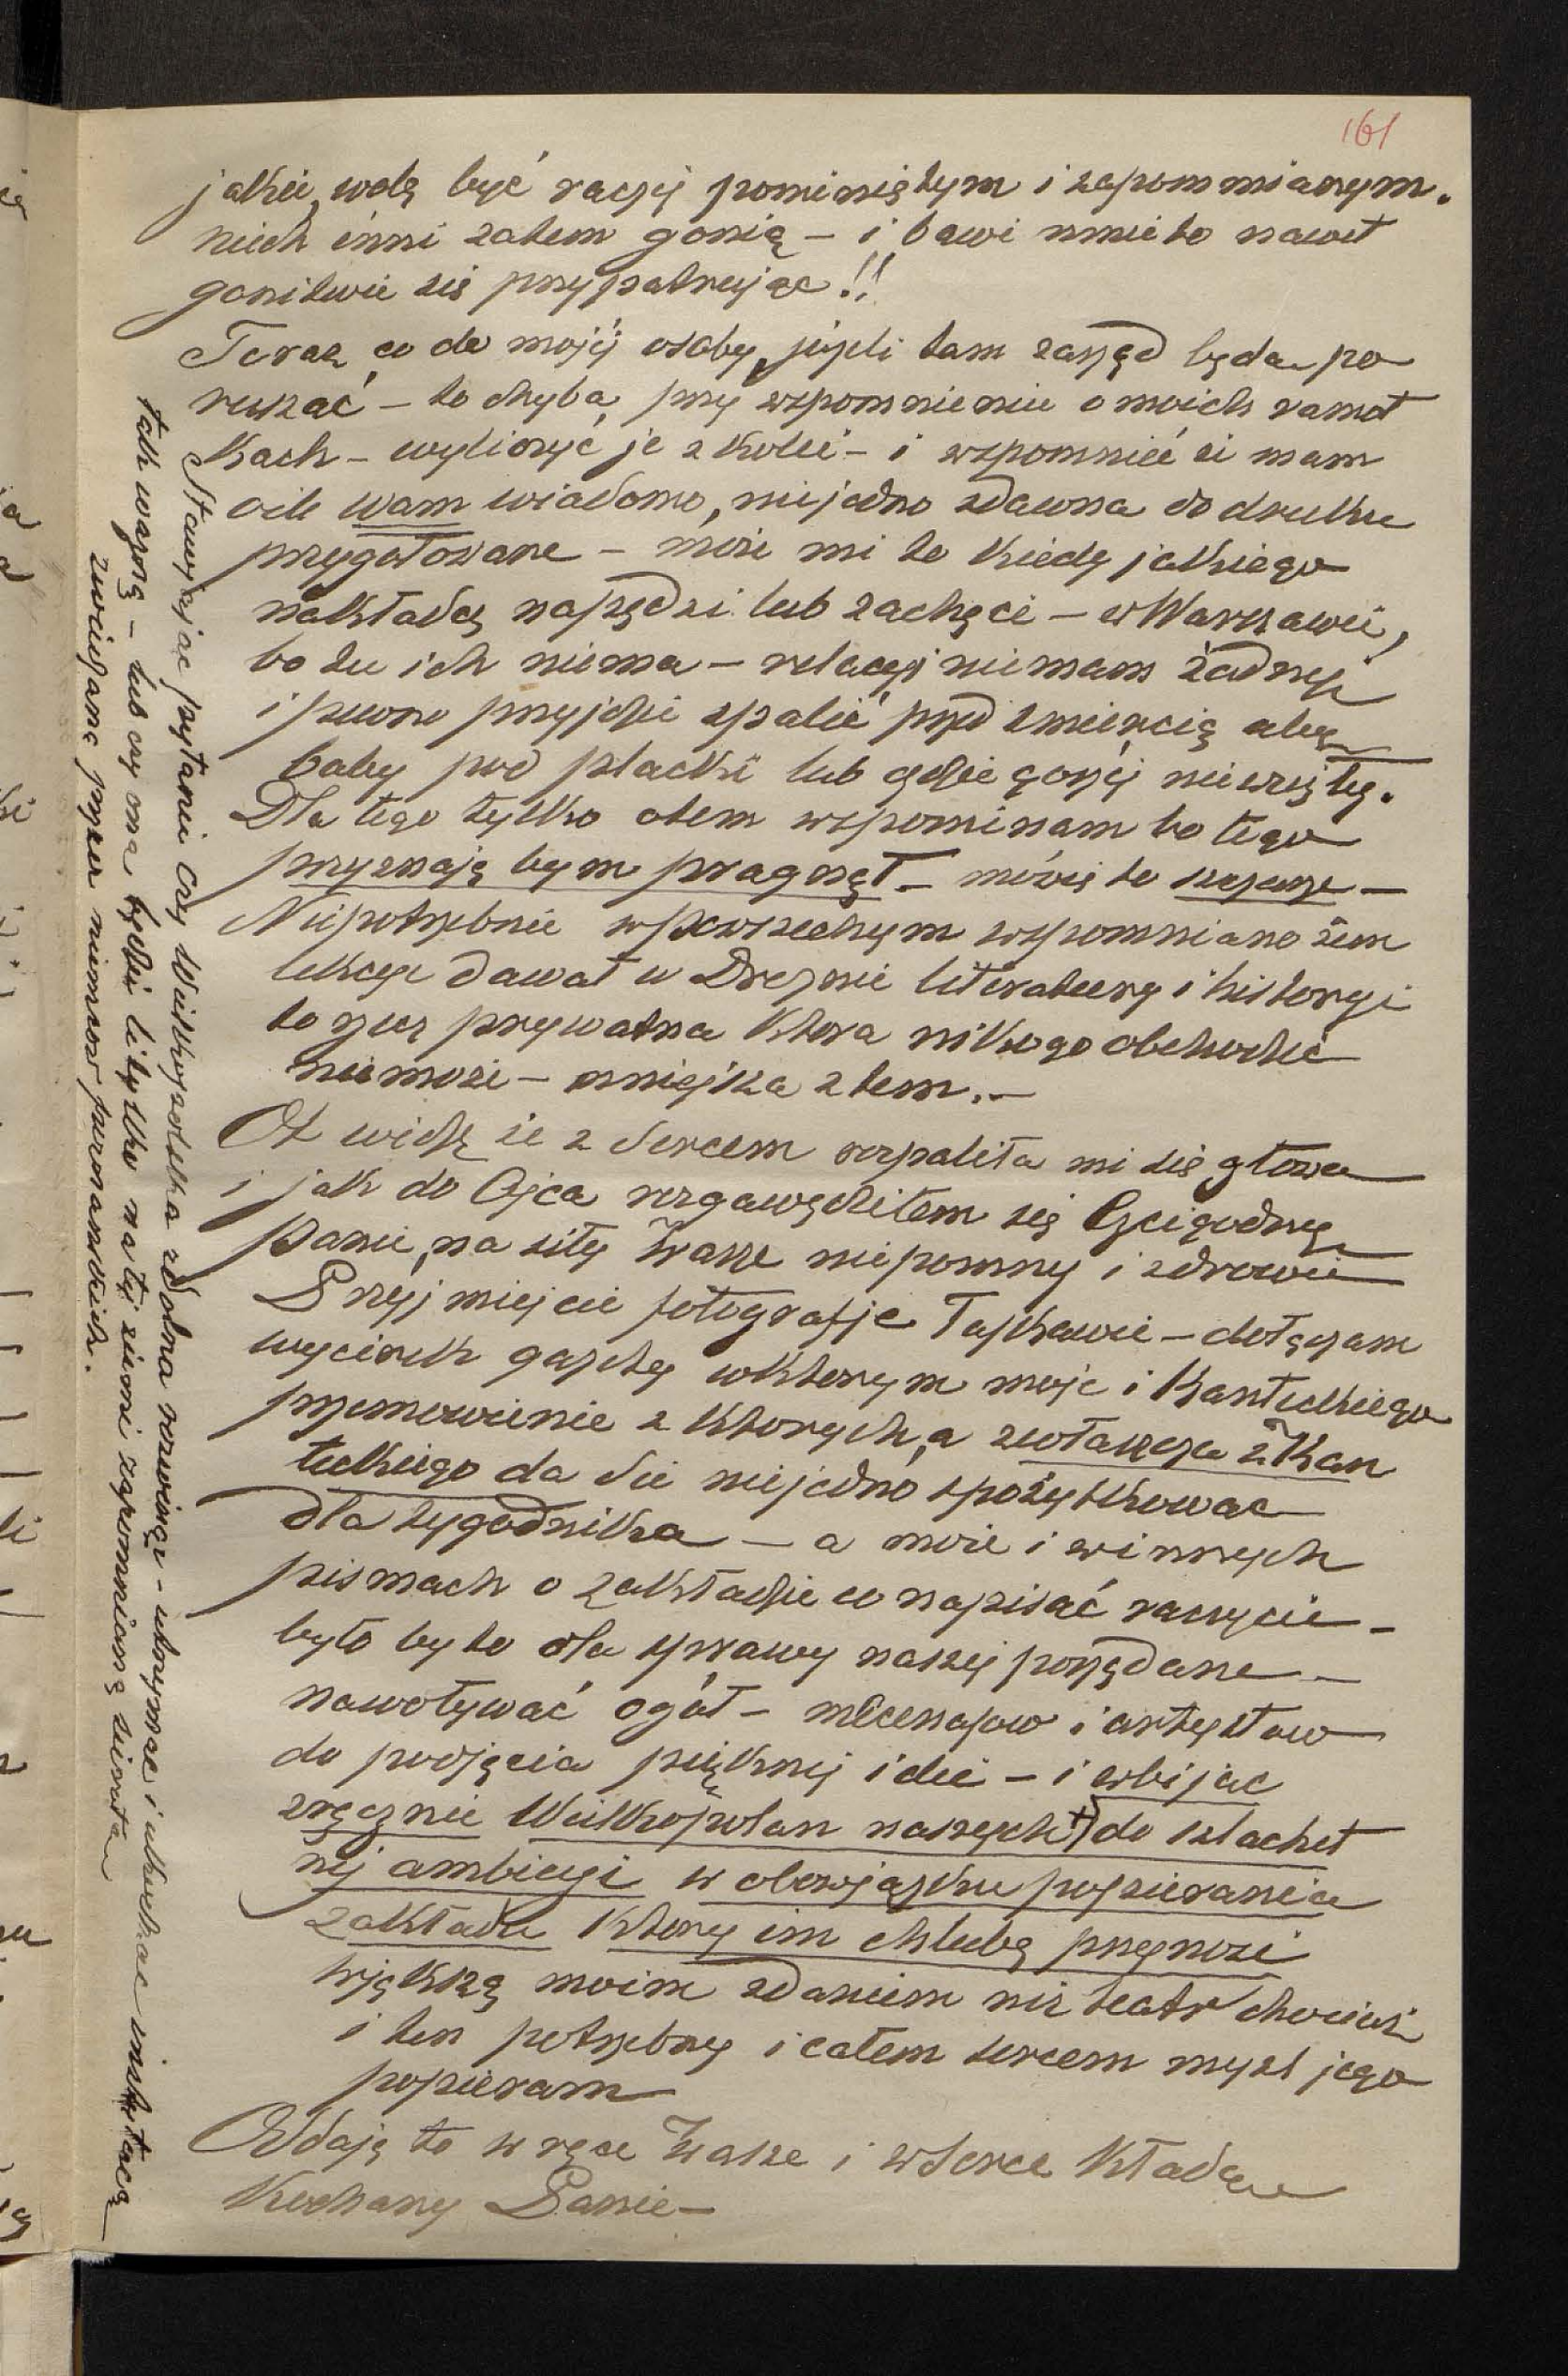 161
jakie, wolę być raczej pominiętym i zapomnianym.
niech inni zatem gonią – i bawi mnie to nawet
gonitwie się przypatrując!!
Teraz co do mojej osoby, jeżeli tam zarząd będą po
ruszać – to chyba, przy wspomnieniu o moich ramot
kach – wyliczyć je z kolei – i wspomnieć że mam
oile wam wiadomo, niejedno zdawna do druku
przygotowane – może mi to kiedy jakiego
nakładcę napędzi lub zachęci – w Warszawie,
bo tu ich niema – relacyi niemam żadnej
i pewno przyjdzie spalić przed śmiercią aby
baby pod placki lub gdzie gorzej nie wzięły.
Dla tego tylko otem wspominam bo tego
przyznaję bym pragnął – mówię to szczerze –
Niepotrzebnie w powszechnym wspomniano żem
lekcye dawał w Dreznie literatury i historyi
to rzecz prywatna ktora nikogo obchodzić
niemoże – mniejsza z tem. –
Ot widzę że z sercem rozpaliła mi się głowa
i jak do Ojca rozgawędziłem się Czcigodny
Panie, na siły Wasze niepomny i zdrowie
Przyjmiejcie fotografje łaskawie – dołączam
wycinek gazety wktorym moje i Kanteckiego
przemowienie z ktorych, a zwłaszcza z Kan
teckiego da sie niejedno spożytkować
dla tygodnika – a może i winnych
pismach o zakładzie co napisać raczycie –
było by to dla sprawy naszej pożądane –
nawoływać ogół – mecenasow i artystow
do podjęcia pięknej idei – i wbijac
zręcznie Wielkopolan naszych +) do szlachet
nej ambicyi w obowjązku popierania
zakładu ktory im chlubę przynosi
większą moim zdaniem niż teatr chociaż
i ten potrzebny i całem sercem myśl jego
popieram
Oddaję to w ręce Wasze i w serce kładę
Kochany Panie –
Stawjając pytanie czy Wielkopolska zdolna rozwinąć – utrzymać i ukochać instytucą
tak ważną – lub czy ona będzie li tylko na tej ziemi zapomnianą sierotą
zwiedzaną przez niemcow poznanskich.